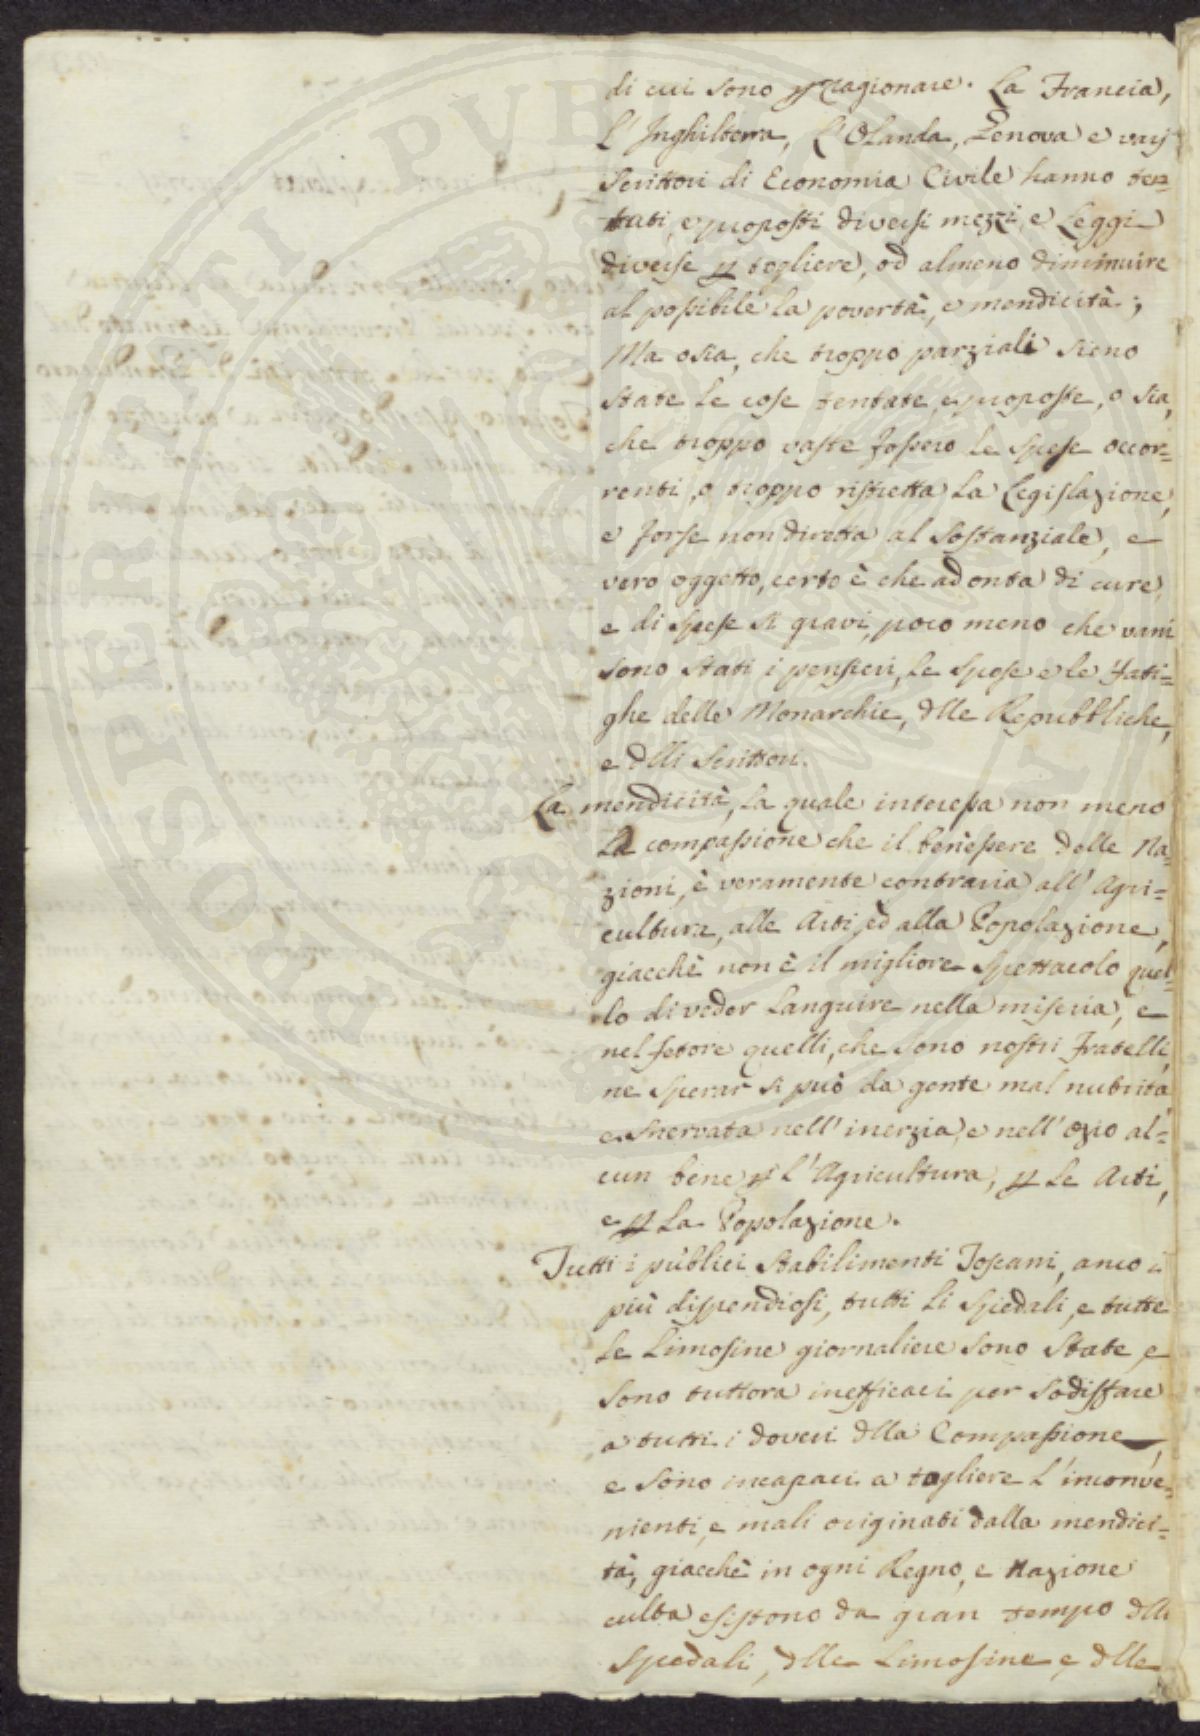 di cui sono p ragionare. La Francia,
l'Inghilterra, l'Olanda, Genova e varj
Scrittori di Economia Civile hanno ten=
tati, e proposti diversi mezzi, e Leggi
diverse p togliere, od almeno diminuire
al possibile la povertà, e mendicità;
Ma osia, che troppo parziali sieno
state le cose tentate, e proposte, o sia,
che troppo vaste fossero le spese occor=
renti, o troppo ristretta la Legislazione,
e forse non diretta al sostanziale, e
vero oggetto, certo è che ad onta di cure,
e di spese si gravi, poco meno che vani
sono stati i pensieri, le spese e le fati=
ghe delle Monarchie, dlle Repubbliche,
e dlli Scrittori.
La mendicità, la quale interessa non meno
la compassione che il benessere delle Na=
zioni, è veramente contraria all'Agri=
cultura, alle Arti, ed alla Popolazione,
giacchè non è il migliore spettacolo quel=
lo di veder languire nella miseria, e
nel fetore quelli, che sono nostri Fratelli,
ne sperar si può da gente mal nutrita,
e snervata nell'inerzia, e nell'ozio al=
cun bene p l'Agricultura, p le Arti,
e p la Popolazione.
Tutti i publici stabilimenti Toscani, anco i
più dispendiosi, tutti li Spedali, e tutte
le Limosine giornaliere sono state, e
sono tuttora inefficaci per sodisfare
a tutti i doveri dlla Compassione,
e sono incapaci a togliere l'inconve=
nienti, e mali originati dalla mendici=
tà, giacchè in ogni Regno, e Nazione
culta esistono da gran tempo dlli
Spedali, dlle Limosine, e dlle
SPERITI PUBLICE